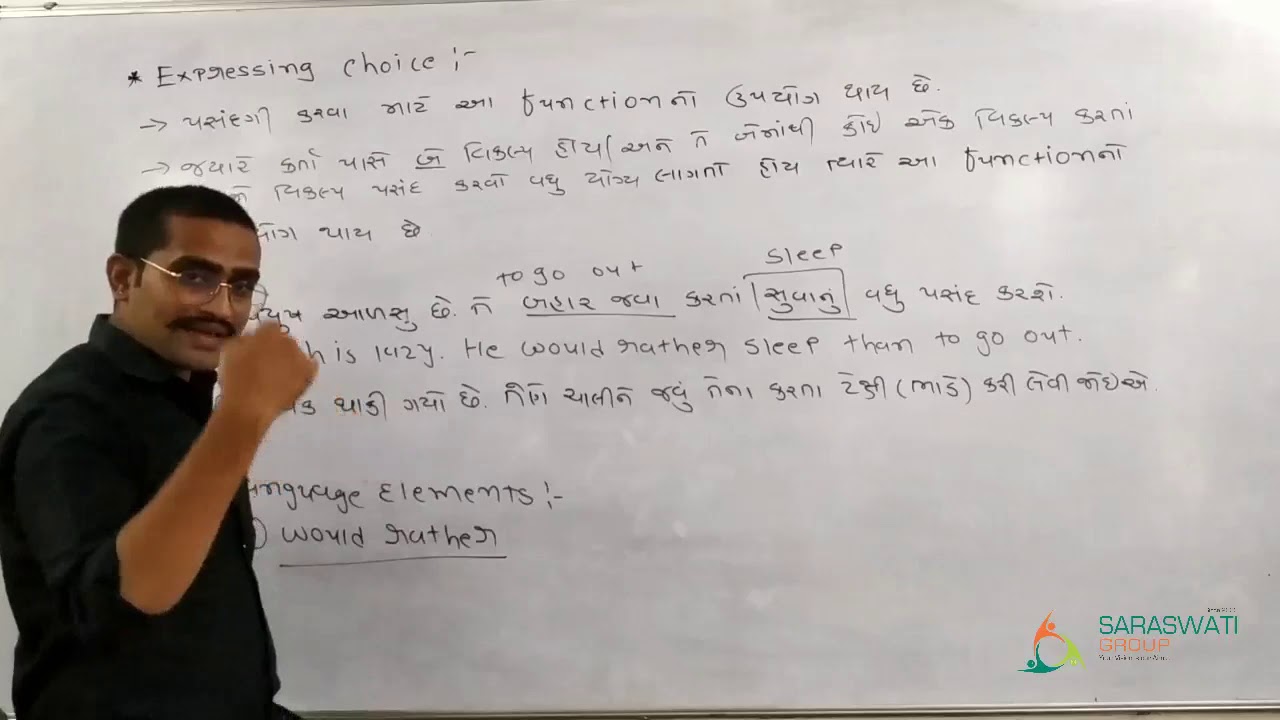 * Expressing choice :-
→ પસંદગી કરવા માટે આ function નો ઉપયોગ થાય છે.
→ જ્યારે કર્તા પાસે બે વિકલ્પ હોય અને તે બેમાંથી કોઇ એક વિકલ્પ કરતાં
વિકલ્પ પસંદ કરવો વધુ યોગ્ય લાગતો હોય ત્યારે આ function નો
થાય છે.
to go out sleep
આળસુ છે. તે બહાર જવા કરતાં સુવાનું વધુ પસંદ કરશે.
is lazy. He would rather sleep than to go out.
થાકી ગયો છે. તેણે ચાલીને જવું તેના કરતા ટેક્ષી (ભાડે) કરી લેવી જોઇએ.
Elements :-
would rather
SARASWATI
GROUP